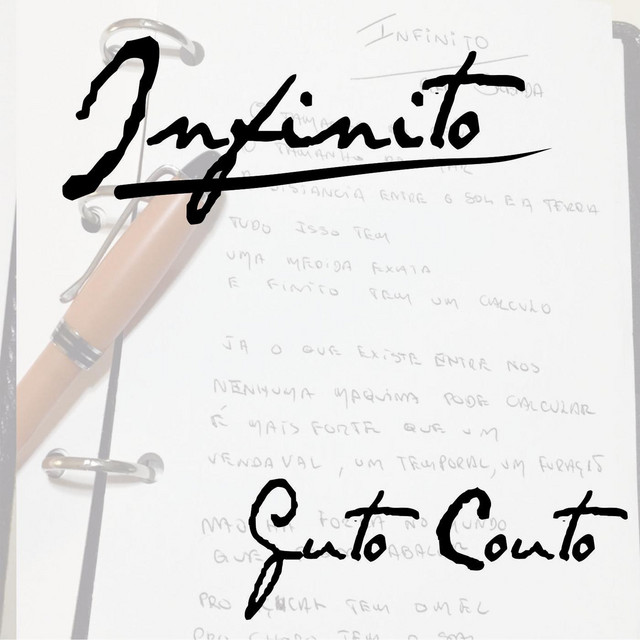 INFINITO
Infinito
DISTANCIA ENTRE O SOL E A TERRA
TUDO ISSO TEM
UMA MEDIDA EXATA
E FINITO TEM UM CALCULO
JA O QUE EXISTE ENTRE NOS
NENHUMA MAQUINA PODE CALCULAR
É MAIS FORTE QUE UM
VENDAVAL, UM TEMPORAL, UM FURAÇÃO
NO MUNDO
QUE
Guto Couto
TEM O MEL
PRO CHORO TEM O SOM